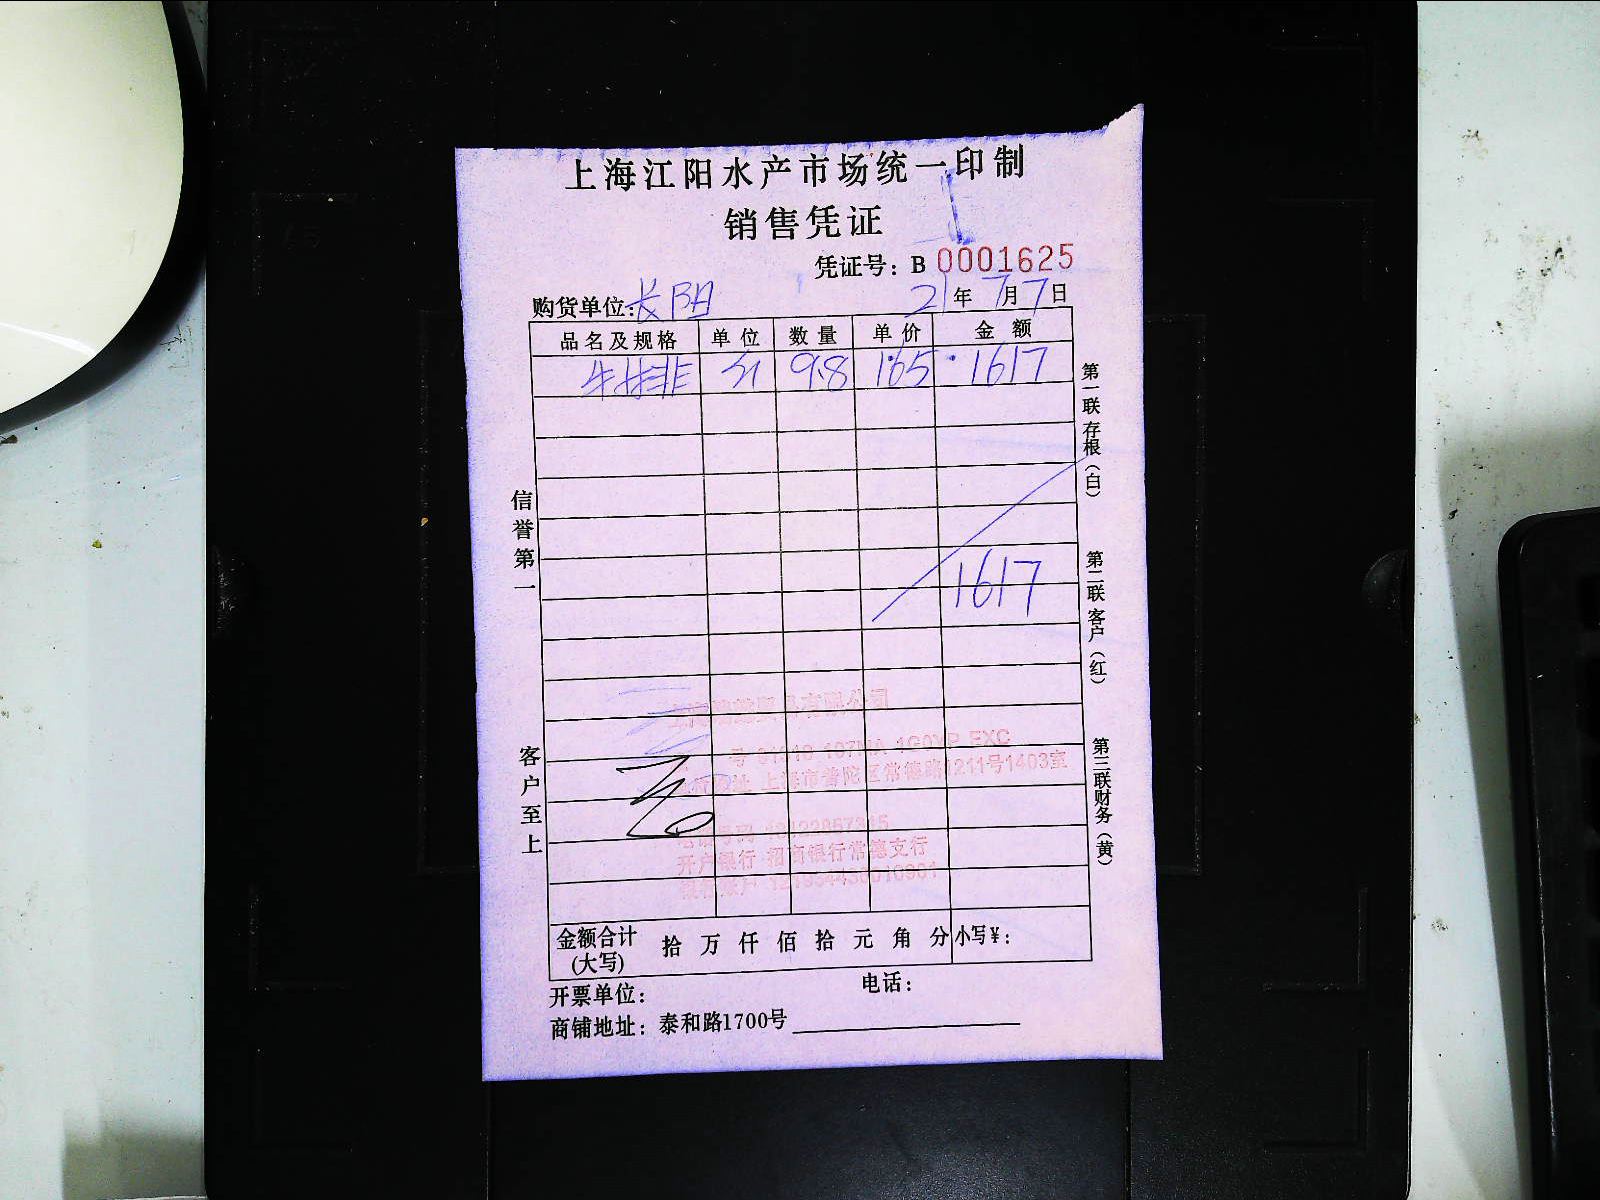 上海江阳水产市场统一印制
销售凭证
凭证号：B 0001625
购货单位：长阳 21年7月7日
品名及规格 单位 数量 单价 金额
9.8 165 1617
1617
信誉第一
客户至上
第一联存根（白）
第二联客户（红）
第三联财务（黄）
有限公司
上海市普陀区常德路1211号1403室
开户银行 招商银行常德支行
金额合计（大写） 拾万仟佰拾元角分 小写¥：
开票单位： 电话：
商铺地址：泰和路1700号